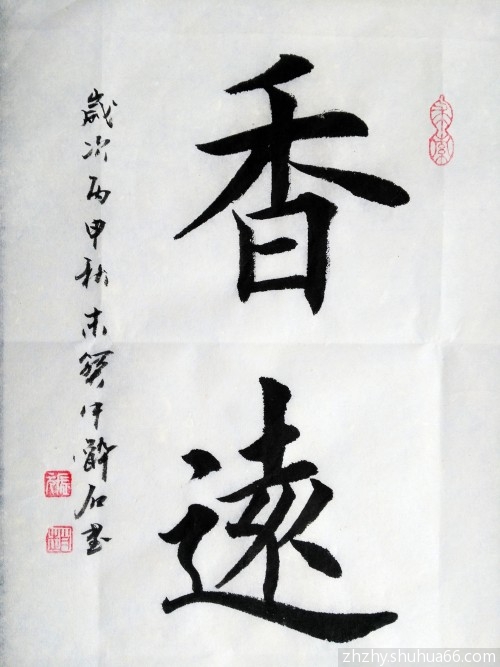 香遠
歲次丙申秋末癸仲醉石書
zhzhy.shuhua66.com